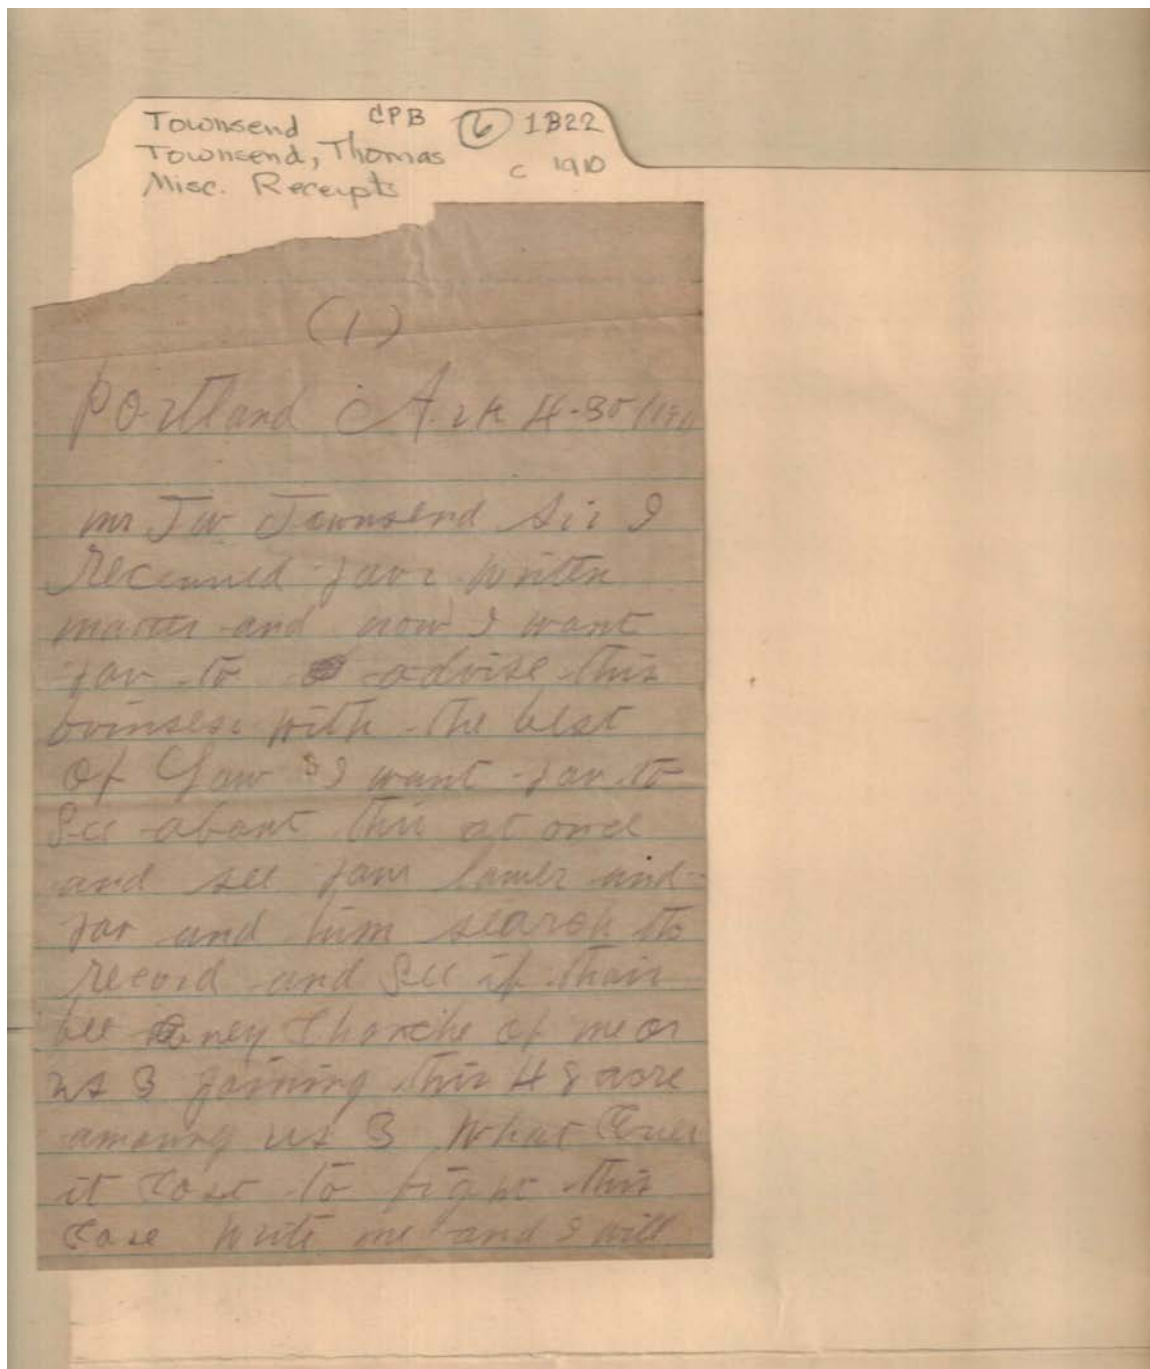 Townsend CPB 6 1B22
Townsend, Thomas c 1910
Misc. Receipts
(1)
Portland Ark 4-30
mr Townsend Sir I
Received yavr written
matter and now I want
yav to advise this
with the best
Of Law & I want yav to
See abavt this at once
and see yavr and
yav and him search the
record and See if thair
bee eney Chanche of me or
us 3 gaining this 48 acre
amoung us 3 What Ever
it Cost to fight this
Case write me and I will